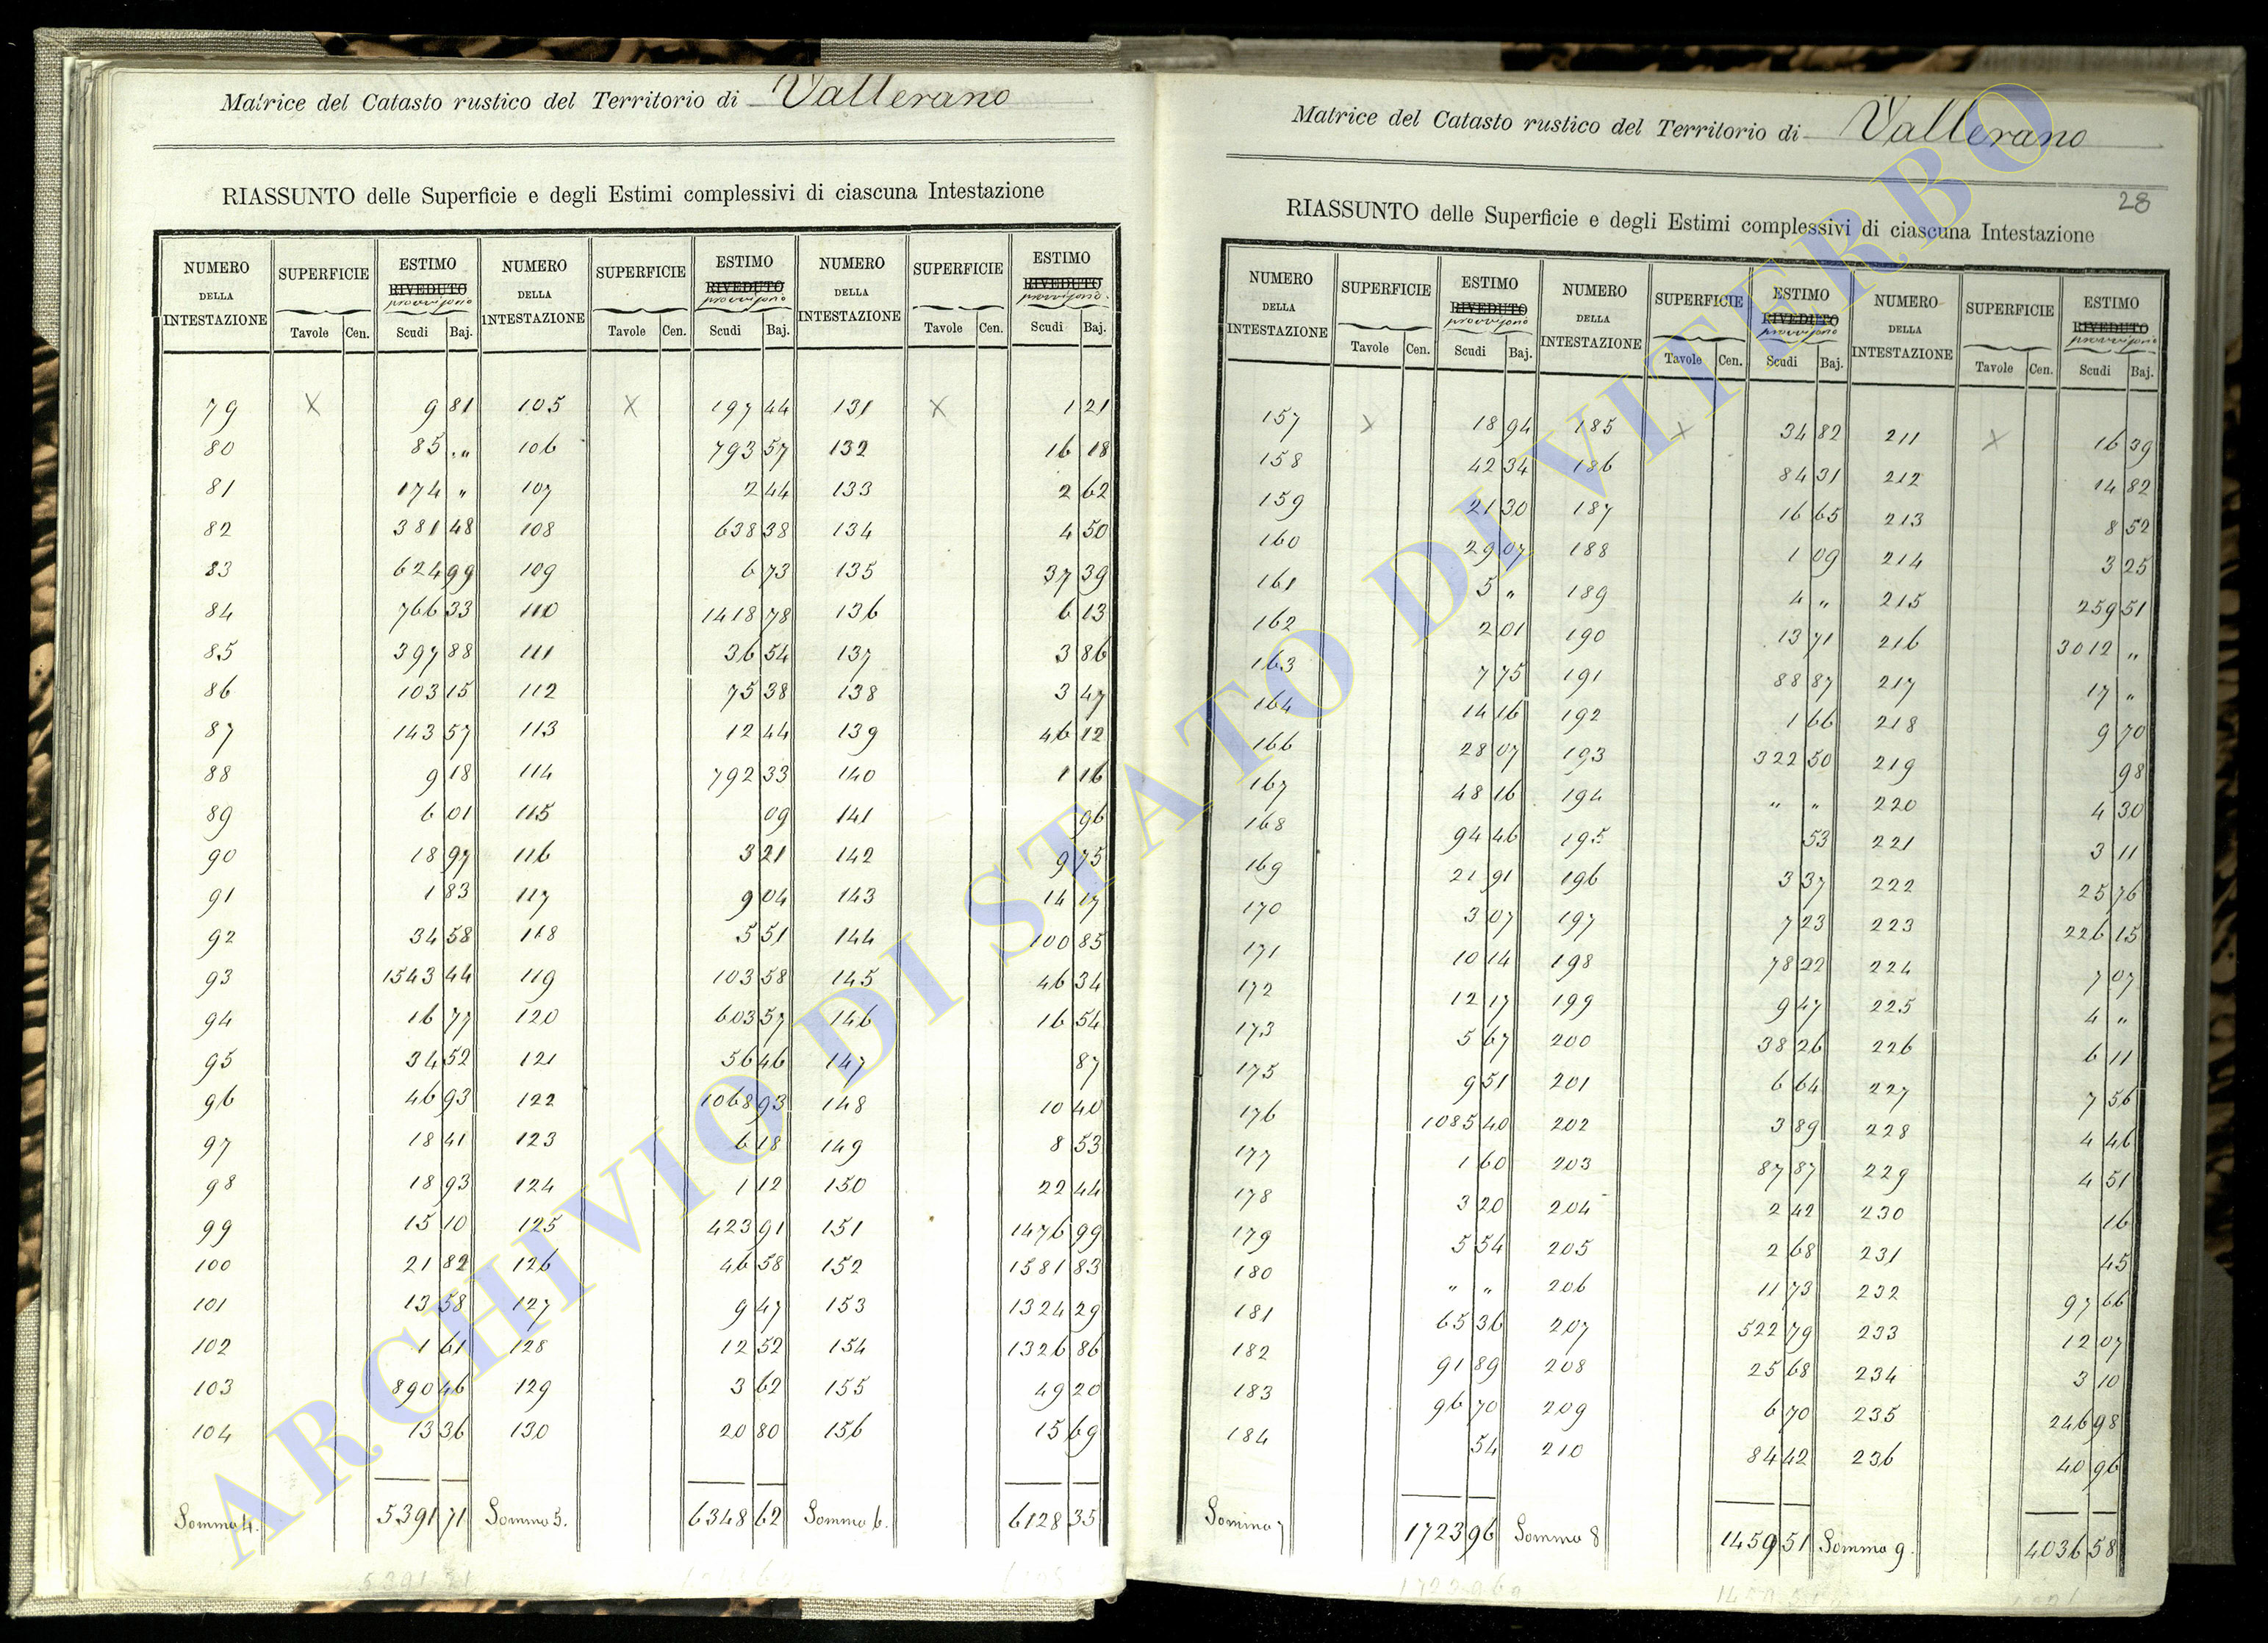 Matrice del Catasto rustico del Territorio di Vallerano
RIASSUNTO delle Superficie e degli Estimi complessivi di ciascuna Intestazione
NUMERO DELLA INTESTAZIONE SUPERFICIE ESTIMO RIVEDUTO provvisorio NUMERO DELLA INTESTAZIONE SUPERFICIE ESTIMO RIVEDUTO provvisorio NUMERO DELLA INTESTAZIONE SUPERFICIE ESTIMO RIVEDUTO provvisorio
Tavole Cen. Scudi Baj. Tavole Cen. Scudi Baj. Tavole Cen. Scudi Baj.
79 X 9 81 105 X 197 44 131 X 1 21
80 85 „ 106 793 57 132 16 18
81 174 „ 107 2 44 133 2 62
82 381 48 108 638 38 134 4 50
83 624 99 109 6 73 135 37 39
84 766 33 110 1418 78 136 6 13
85 397 88 111 36 54 137 3 86
86 103 15 112 75 38 138 3 47
87 143 57 113 12 44 139 46 12
88 9 18 114 792 33 140 1 16
89 6 01 115 09 141 96
90 18 97 116 3 21 142 9 75
91 1 83 117 9 04 143 14 17
92 34 58 118 5 51 144 100 85
93 1543 44 119 103 58 145 46 34
94 16 77 120 603 57 146 16 54
95 34 52 121 56 46 147 87
96 46 93 122 1068 93 148 10 40
97 18 41 123 6 18 149 8 53
98 18 93 124 1 12 150 22 44
99 15 10 125 423 91 151 1476 99
100 21 82 126 46 58 152 1581 83
101 13 58 127 9 47 153 1324 29
102 1 61 128 12 52 154 1326 86
103 890 46 129 3 62 155 49 20
104 13 36 130 20 80 156 15 69
Somma 4. 5391 71 Somma 5. 6348 62 Somma 6. 6128 35
Matrice del Catasto rustico del Territorio di Vallerano
28
RIASSUNTO delle Superficie e degli Estimi complessivi di ciascuna Intestazione
NUMERO DELLA INTESTAZIONE SUPERFICIE ESTIMO RIVEDUTO provvisorio NUMERO DELLA INTESTAZIONE SUPERFICIE ESTIMO RIVEDUTO provvisorio NUMERO DELLA INTESTAZIONE SUPERFICIE ESTIMO RIVEDUTO provvisorio
Tavole Cen. Scudi Baj. Tavole Cen. Scudi Baj. Tavole Cen. Scudi Baj.
157 X 18 94 185 X 34 82 211 X 16 39
158 42 34 186 84 31 212 14 82
159 21 30 187 16 65 213 8 52
160 29 07 188 1 09 214 3 25
161 5 „ 189 4 „ 215 259 51
162 2 01 190 13 71 216 3012 „
163 7 75 191 88 87 217 17 „
164 14 16 192 1 66 218 9 70
166 28 07 193 322 50 219 98
167 48 16 194 „ „ 220 4 30
168 94 46 195 53 221 3 11
169 21 91 196 3 37 222 25 76
170 3 07 197 7 23 223 226 15
171 10 14 198 78 22 224 7 07
172 12 17 199 9 47 225 4 „
173 5 67 200 38 26 226 6 11
175 9 51 201 6 64 227 7 56
176 1085 40 202 3 89 228 4 46
177 1 60 203 87 87 229 4 51
178 3 20 204 2 42 230 16
179 5 54 205 2 68 231 45
180 „ „ 206 11 73 232 97 66
181 65 36 207 522 79 233 12 07
182 91 89 208 25 68 234 3 10
183 96 70 209 6 70 235 246 98
184 54 210 84 42 236 40 96
Somma 7 1723 96 Somma 8 1459 51 Somma 9. 4036 58
ARCHIVIO DI STATO DI VITERBO